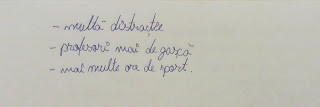 - multă distracție
- profesori mai de gașcă
- mai multe ore de sport.